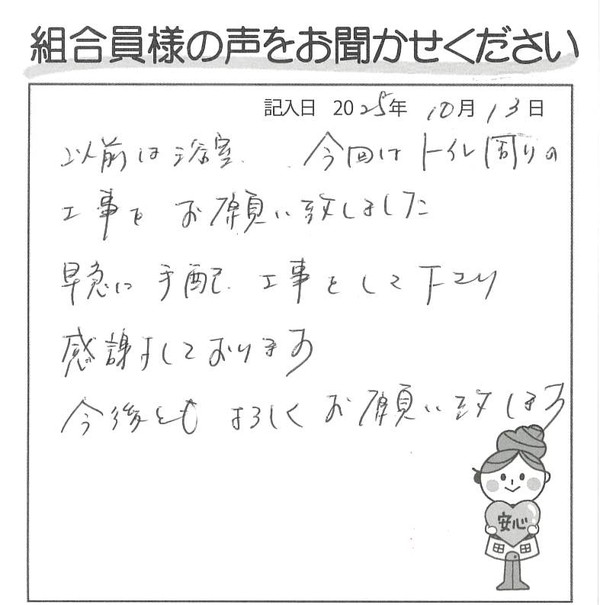 組合員様の声をお聞かせください
記入日 2025年 10月 13日
以前は浴室、今回はトイレ周りの
工事を お願い致しました
早急に 手配、工事をして下さり
感謝しております
今後とも よろしく お願い致します
安心